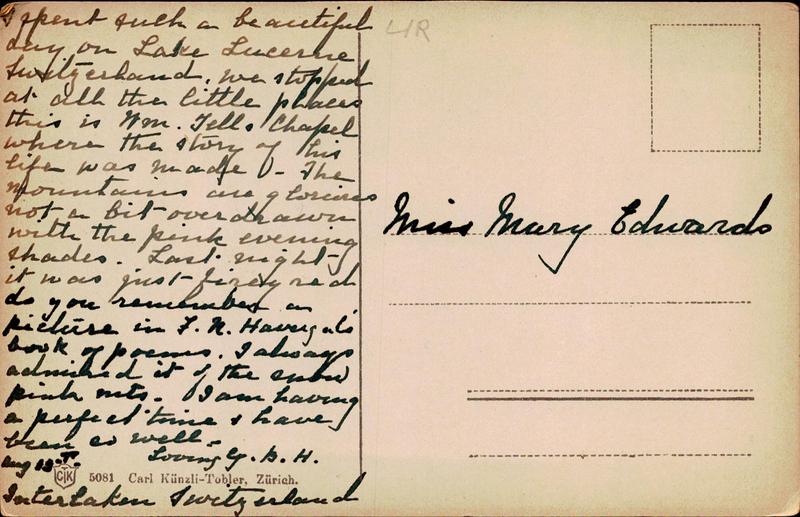 I spent such a beautiful
day on Lake Lucerne
Switzerland, we stopped
at all the little places
this is Wm. Tells Chapel
where the story of his
life was made - The
mountains are glorious
not a bit overdrawn
with the pink evening
shades. Last night
it was just firey red
do you remember a
picture in F. R. Havergals
book of poems. I always
admired it of the snow
pink mts. I am having
a perfect time & have
been so well -
Loving
Aug 13
5081 Carl Künzli-Tobler, Zürich.
Interlaken Switzerland
LIR
Miss Mary Edwards